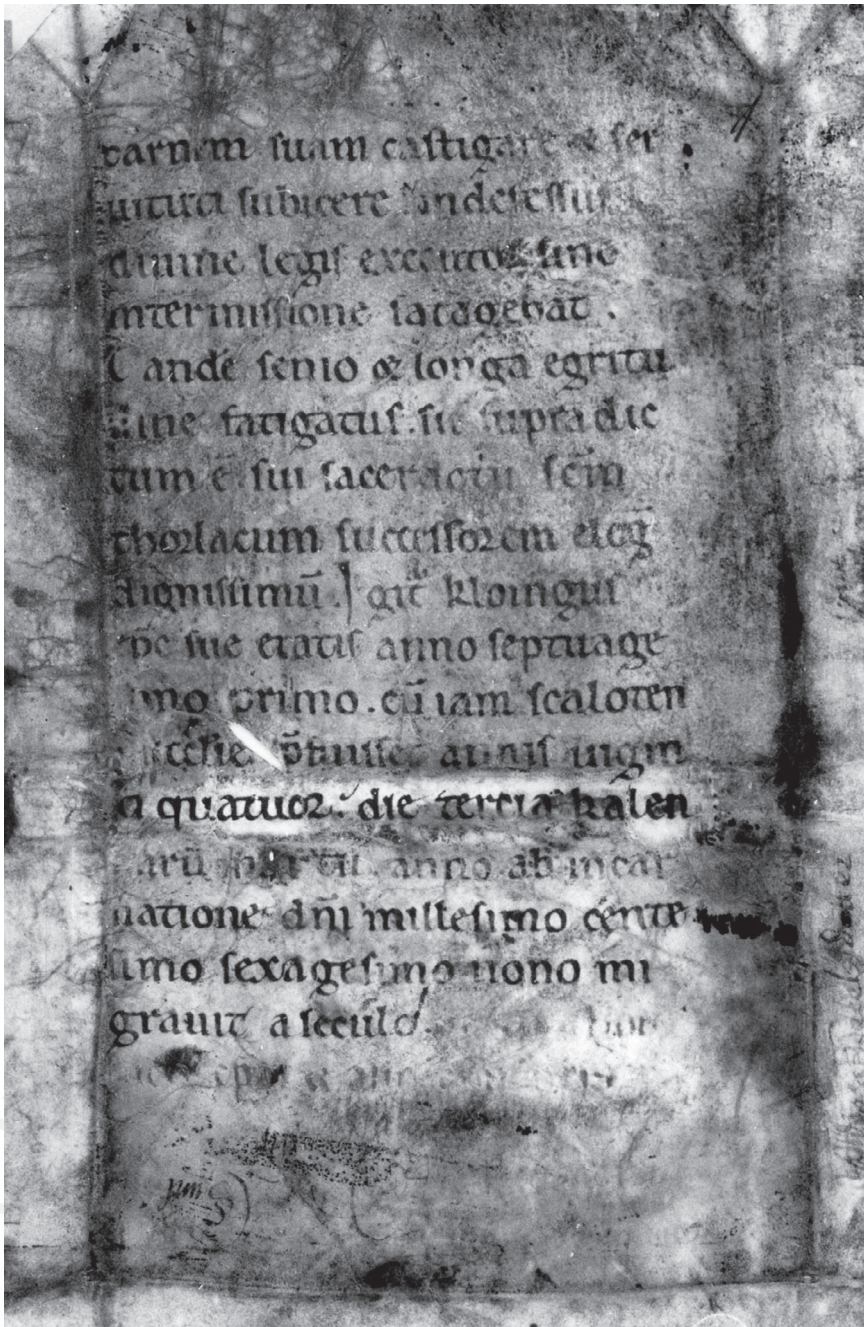 carnem suam castigare & ser
uituti subicere indefessus
diuine legis executor sine
intermissione satagebat .
Tandē senio & longa egritu
dine fatigatus. sic supradic
tum ē sui sacerdotii scm̄
thorlacum successorem eleḡ
dignissimū. Igit̄ kloingus
sue etatis anno septuage
simo primo . cū iam scaloten
ecclesie p̄fuisset annis uigin
ti quatuor. die tercia kalen
darū martii. anno ab incar
natione dn̄i millesimo cente
simo sexagesimo nono mi
grauit a seculo.